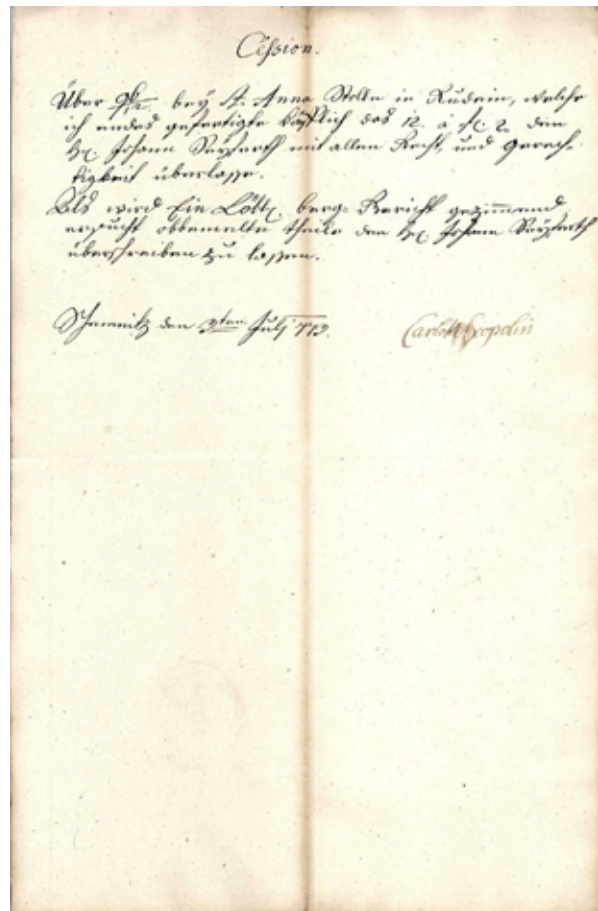 Cession.
Über bey St. Anna Stolle in Rudein, welche
ich endes gefertigte käufflich das à fl. 2 dem
H. Johann mit allen Recht, und gerech-
tigkeit überlasse.
Als wird Ein Löbl. berg-Gericht geziemend
ersucht obbemelte theile den H. Johann
überschreiben zu lassen.
Schemnitz den 3ten July 773.
Carl